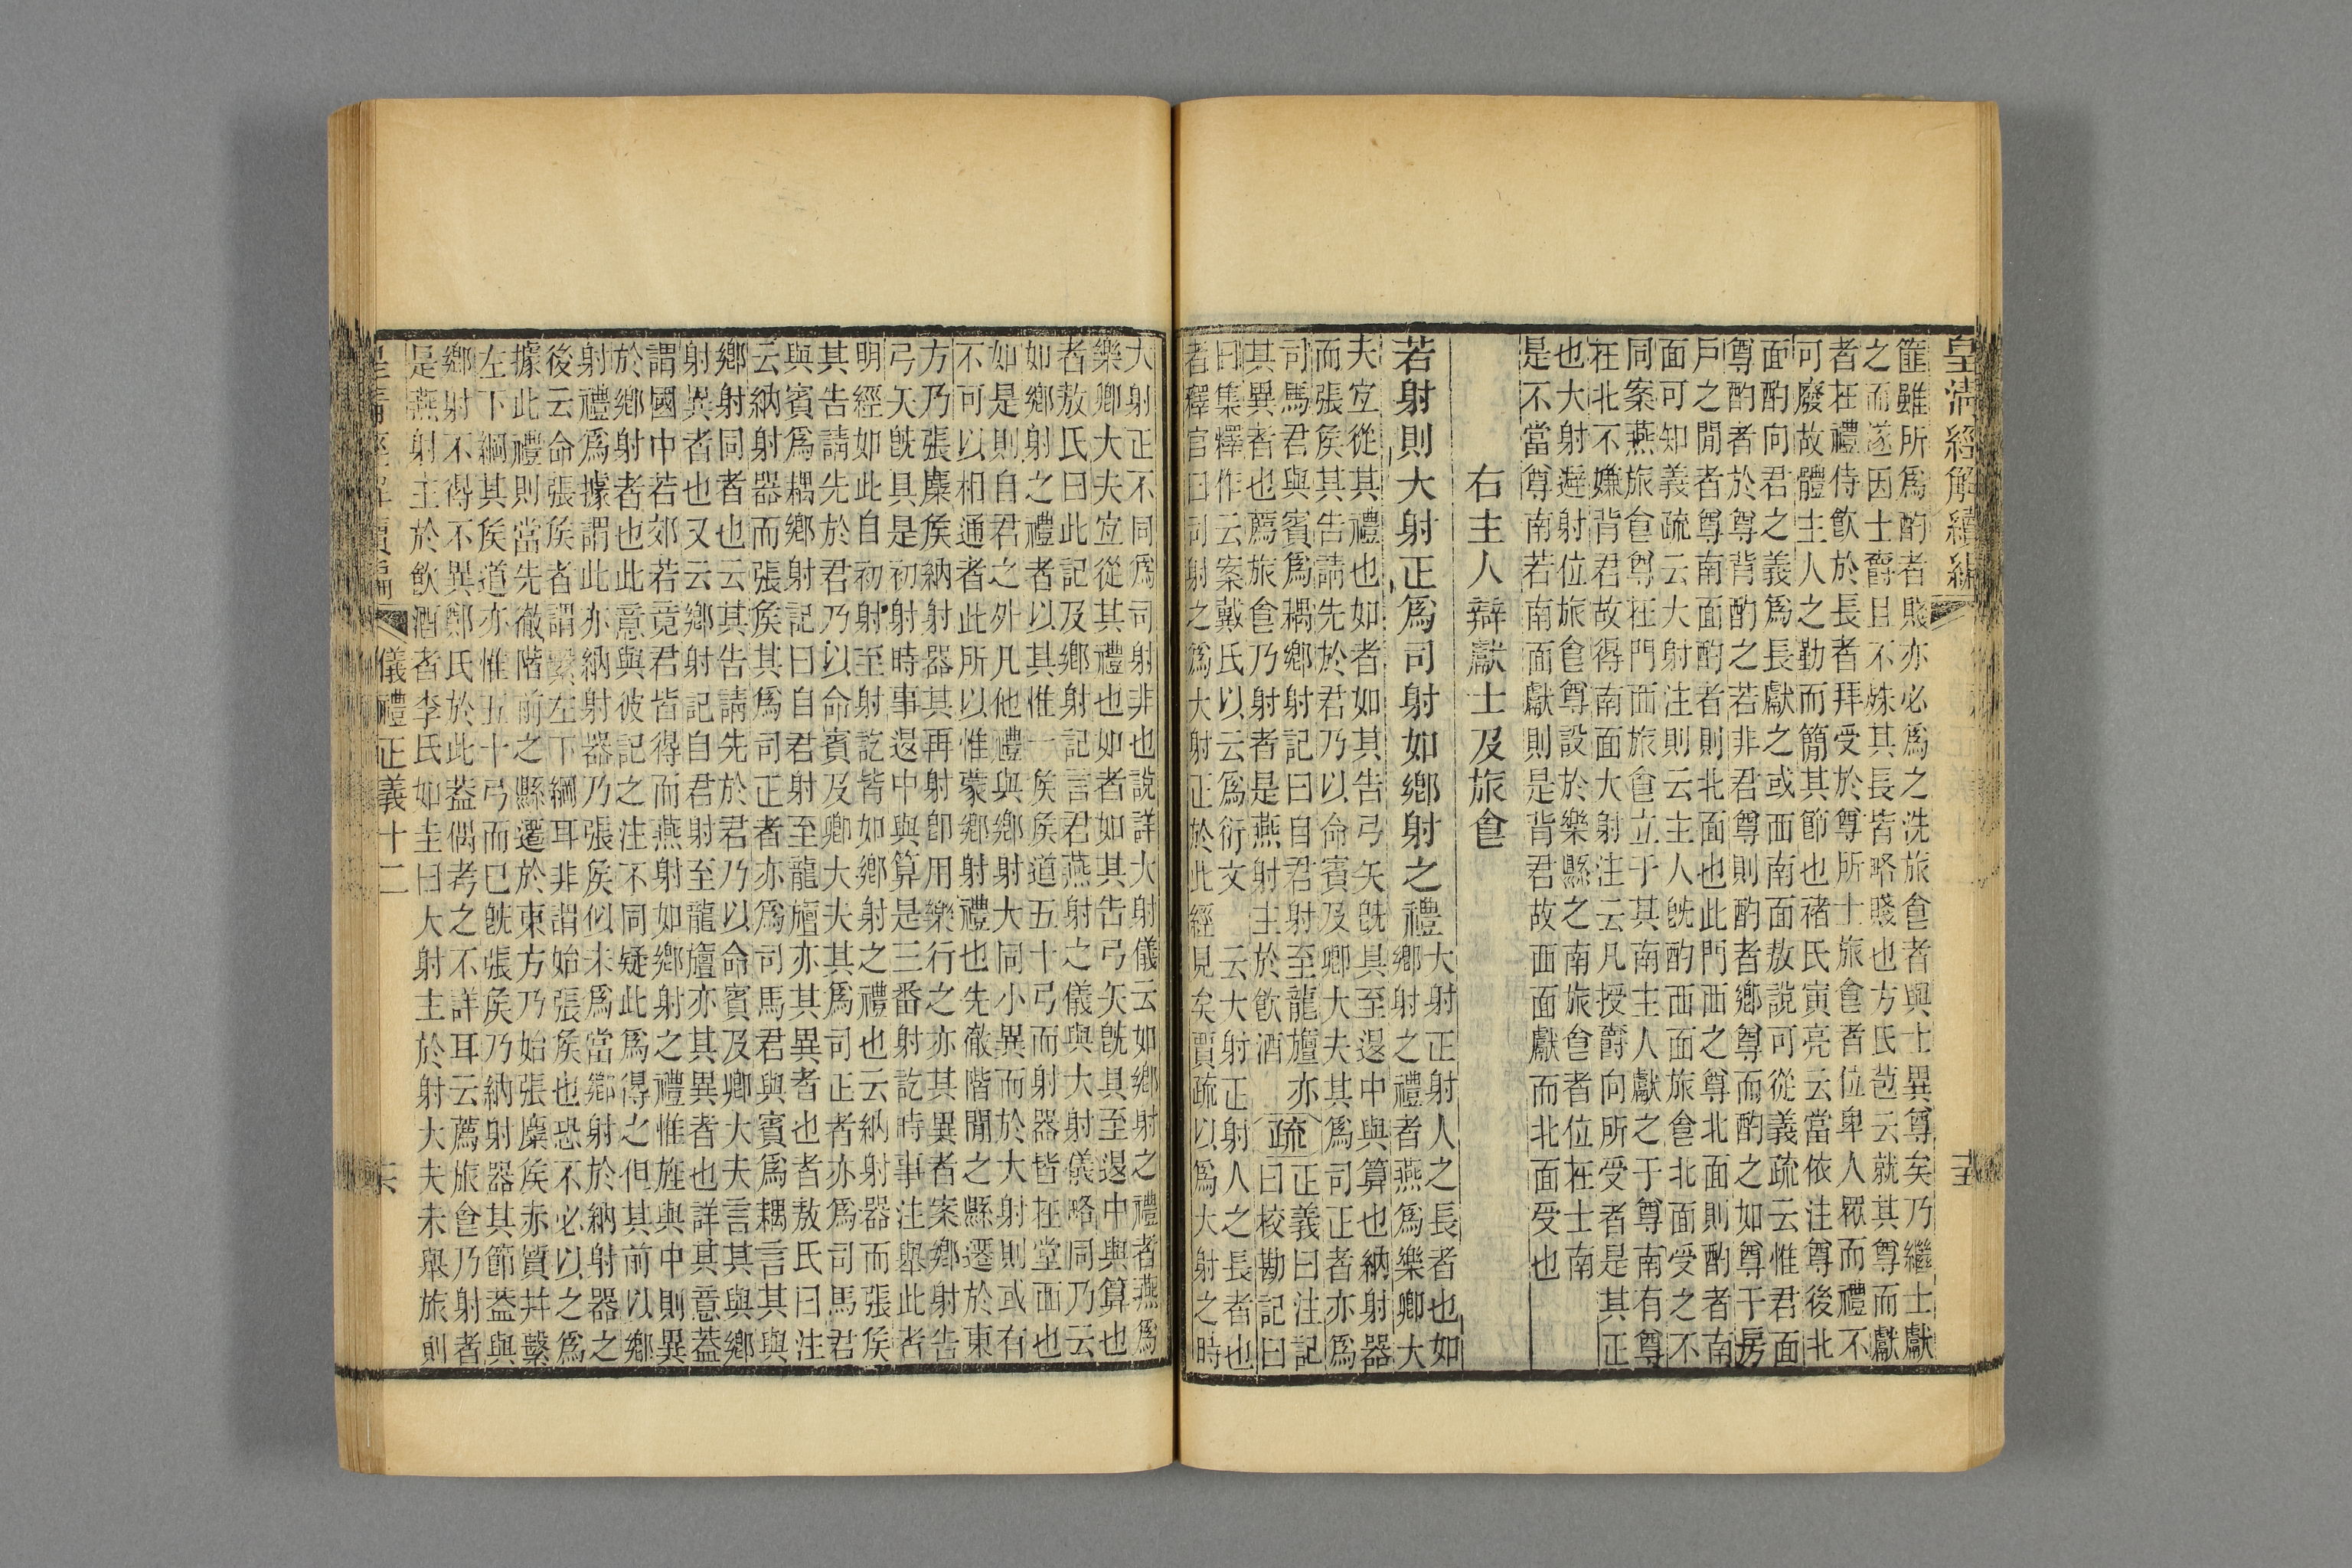 皇清經解續編
篚雖所爲酌者賤亦必爲之洗旅食者與士異尊矣乃繼士獻
之而遂因士爵且不殊其長皆略賤也方氏苞云就其尊而獻
者在禮侍飮於長者拜受於尊所士旅食者位卑人眾而禮不
可廢故體主人之勤而簡其節也褚氏寅亮云當依注尊後北
面酌向君之義爲長獻之或西南面敖說可從義疏云惟君面
尊酌者於尊背酌之若非君尊則酌者鄉尊而酌之如尊于房
戶之閒者尊南面酌者則北面也此門西之尊北面則酌者南
面可知義疏云大射注則云主人旣酌西面旅食北面受之不
同案燕旅食尊在門西旅食立于其南主人獻之于尊南有尊
在北不嫌背君故得南面大射注云凡授爵向所受者是其正
也大射避射位旅食尊設於樂縣之南旅食者位在士南
是不當尊南若南面獻則是背君故西面獻而北面受也
右主人辯獻士及旅食
若射則大射正爲司射如鄉射之禮
大射正射人之長者也如
鄉射之禮者燕爲樂卿大
夫宜從其禮也如者如其告弓矢旣具至退中與算也納射器
而張侯其告請先於君乃以命賓及卿大夫其爲司正者亦爲
司馬君與賓爲耦鄉射記曰自君射至龍旜亦
其異者也薦旅食乃射者是燕射主於飮酒
疏
正義曰注記
曰校勘記曰
曰集釋作云案戴氏以云爲衍文 云大射正射人之長者也
者釋官曰司射之爲大射正於此經見矣賈疏以爲大射之時
大射正不同爲司射非也說詳大射儀云如鄉射之禮者燕爲
樂卿大夫宜從其禮也如者如其告弓矢旣具至退中與算也
者敖氏曰此記及鄉射記言君燕射之儀與大射儀略同乃云
如鄉射之禮者以其惟一侯侯道五十弓而射器皆在堂西也
如是則自君之外凡他禮與鄉射大同小異而於大射則或有
不可以相通者此所以惟蒙鄉射禮也先徹階閒之縣遷於東
方乃張麋侯納射器其再射卽用樂行之亦其異者案鄉射告
弓矢旣具是初射時事退中與算是三番射訖時事注舉此者
明經如此自初射至射訖皆如鄉射之禮也云納射器而張侯
其告請先於君乃以命賓及卿大夫其爲司正者亦爲司馬君
與賓爲耦鄉射記曰自君射至龍旜亦其異者也者敖氏曰注
云納射器而張侯其爲司正者亦爲司馬君與賓爲耦言其與
鄉射同者也云其告請先於君乃以命賓及卿大夫言其與鄉
射異者也又云鄉射記自君射至龍旜亦其異者也詳其意蓋
謂國中若郊若竟君皆得而燕射如鄉射之禮惟旌與中則異
於鄉射者也此意與彼記之注不同疑此爲得之但其前以鄉
射禮爲據謂此亦納射器乃張侯似未爲當鄉射於納射器之
後云命張侯者謂繫左下綱耳非謂始張侯也恐不必以之爲
據此禮則當先徹階前之縣遷於東方乃始張麋侯赤質幷繫
左下綱其侯道亦惟五十弓而已旣張侯乃納射器其節蓋與
鄉射不得不異鄭氏於此蓋偶考之不詳耳云薦旅食乃射者
是燕射主於飮酒者李氏如圭曰大射主於射大夫未舉旅則
皇清經解續編 儀禮正義十二